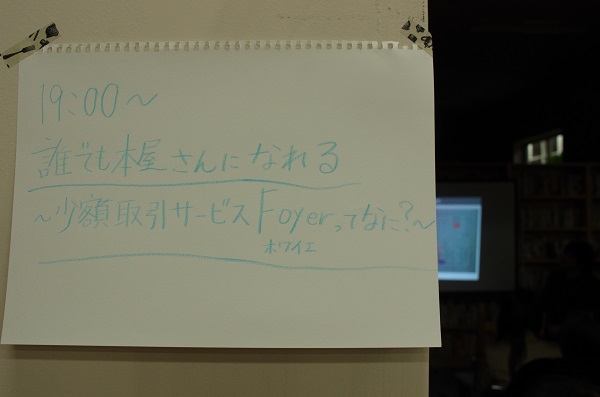 19:00〜
誰でも本屋さんになれる
〜少額取引サービスFoyerってなに?〜
ホワイエ